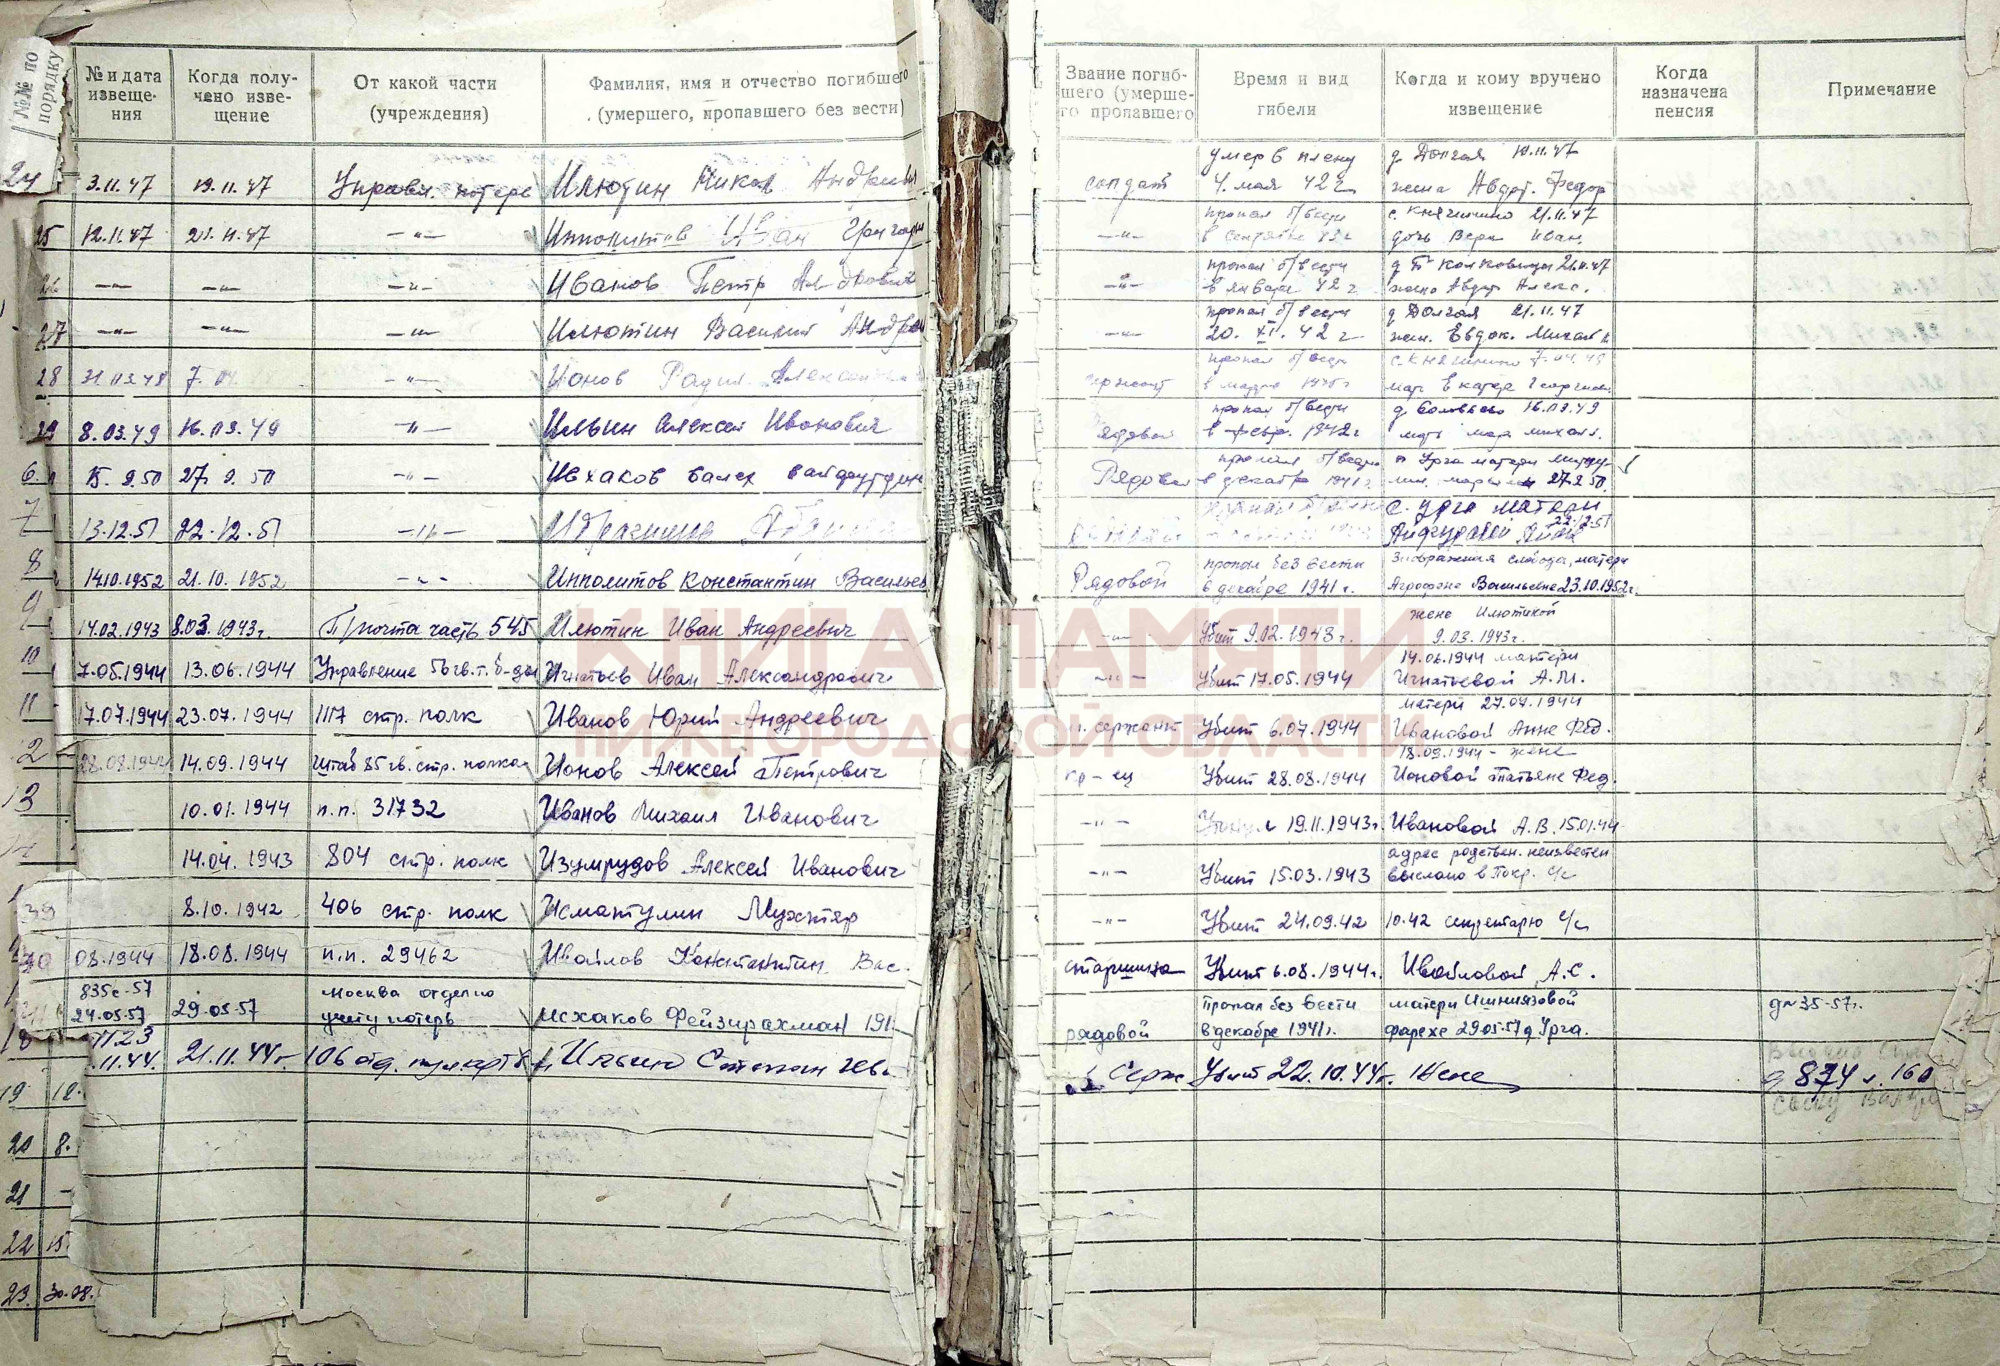 №№ по порядку
№ и дата извеще- ния
Когда полу- чено изве- щение
От какой части (учреждения)
Фамилия, имя и отчество погибшего (умершего, пропавшего без вести)
Звание погиб- шего (умерше- го пропавшего
Время и вид гибели
Когда и кому вручено извещение
Когда назначена пенсия
Примечание
24 3.11.47 19.11.47 Управл. потерь Илютин Никол Андреевич солдат умер в плену 4. мая 42 г д. Долгая 19.11.47 жена Авдот. Федор
25 12.11.47 21.11.47 —"— Ипполитов Иван Григорь —"— пропал б/вести в 43 г с. Княгинино 21.11.47 дочь Вера Иван.
—"— —"— —"— Иванов Петр —"— пропал б/вести в январе 42 г 21.11.47 жена Авдот Алекс.
27 —"— —"— —"— Илютин Василий Андре —"— пропал б/вести 20. XI. 42 г д Долгая 21.11.47 жен. Евдок. Михайл
28 31.03.48 7.04 —"— Ионов сержант пропал б/вести в с. Княгинино 7.04.48 мать
29 8.03.49 16.03.49 —"— Ильин Алексей Иванович Рядовой пропал б/вести в февр. 1942 г д. Соловьево 16.03.49 мать мар. михайл.
6 15.9.50 27.9.50 —"— Исхаков Рядовой пропал б/вести в декабре 1941 г Урга матери 27.9.50.
7 13.12.51 22.12.51 —"— Ибрагимов с. Урга матери 22.12.51
8 14.10.1952 21.10.1952 —"— Ипполитов Константин Васильев Рядовой пропал без вести в декабре 1941 г. слобода, матери Агрофене Васильевне 23.10.1952 г.
9 14.02.1943 8.03.1943г. П/почта часть 545 Илютин Иван Андреевич —"— Убит 9.02.1943 г. жене Илютиной 9.03.1943 г.
10 7.05.1944 13.06.1944 Управление 56 гв.т.б-да Игнатьев Иван Александрович —"— Убит 17.05.1944 14.06.1944 матери Игнатьевой А.М.
11 17.07.1944 23.07.1944 1117 стр. полк Иванов Юрий Андреевич сержант Убит 6.07.1944 матери 27.07.1944 Ивановой Анне Фед.
12 28.08.1944 14.09.1944 Штаб 85 гв. стр. полка Ионов Алексей Петрович кр-ец Убит 28.08.1944 18.09.1944 - жене Ионовой Татьяне Фед.
13 10.01.1944 п.п. 31732 Иванов Михаил Иванович —"— 19.11.1943г. Ивановой А.В. 15.01.44
14.04.1943 804 стр. полк Изумрудов Алексей Иванович —"— Убит 15.03.1943 адрес родствен. неизвестен выслано в Покр. с/с
39 8.10.1942 406 стр. полк Исматулин Мухтяр —"— Убит 24.09.42 10.42 секретарю с/с
40 08.1944 18.08.1944 п.п. 29462 Ивойлов Константин Вас. старшина Убит 6.08.1944г. Ивойловой А.С.
835с-57 24.05.57 29.05.57 Москва отдел по учету потерь Исхаков Фейзирахман 191 рядовой Пропал без вести в декабре 1941г. матери Ишниязовой фарехе 29.05.57 д Урга. д№35-57г.
18 1123 11.44. 21.11.44г. 106 отд. Ильин Степан Серж Убит 22.10.44г. Жене д 874 л. 160
19 12.
20 8.
21 —
22 15.
23. 30.08.
КНИГА ПАМЯТИ
НИЖЕГОРОДСКОЙ ОБЛАСТИ